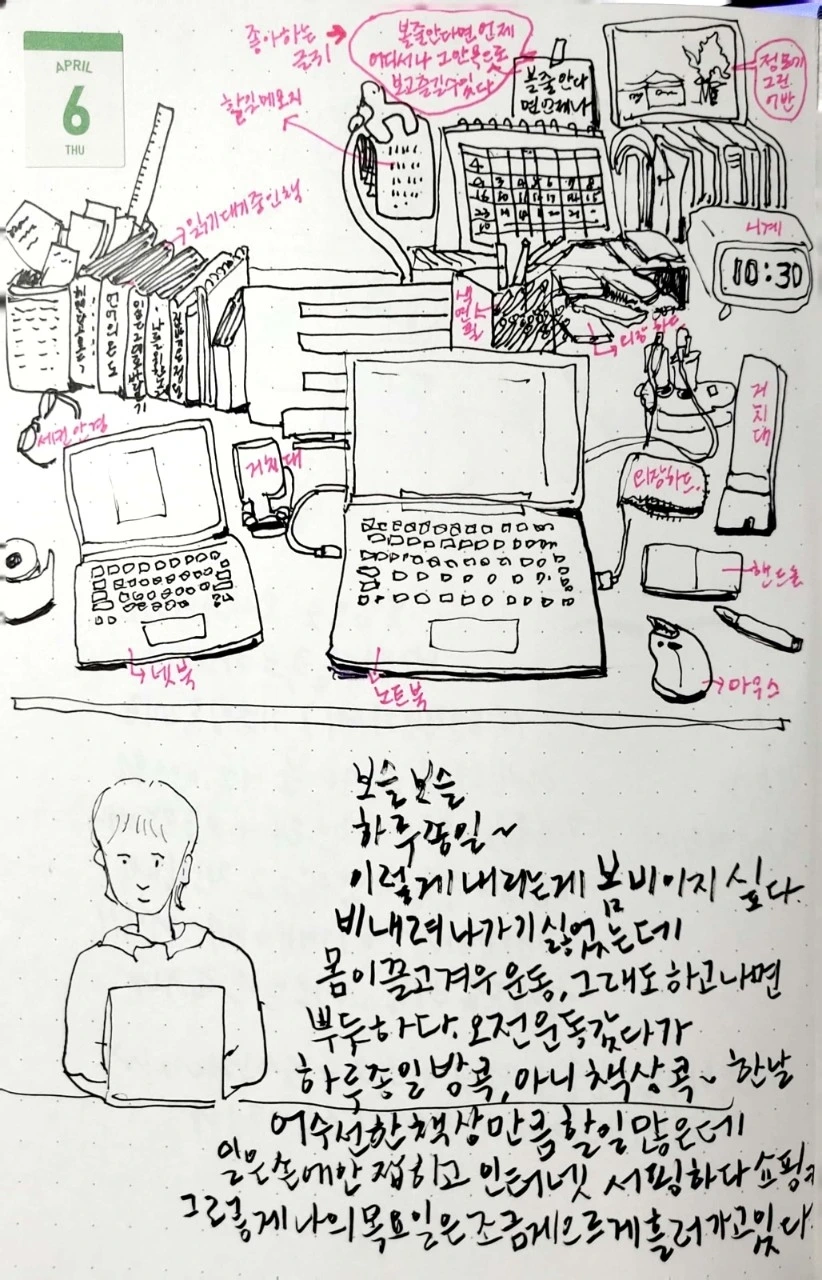 APRIL
6
THU
좋아하는
글귀
볼줄안다면 언제
어디서나 그만목으로
보고즐길수있다
볼줄안다
면언제나
할일메모지
읽기대기중인책
시계
10:30
색
연
필
외장하드
세컨안경
거치대
거
치
대
외장하드
핸드폰
넷북
노트북
마우스
보슬보슬
하루종일~
이렇게 내리는게 봄비이지 싶다.
비내려 나가기 싫었는데
몸이끌고겨우 운동, 그래도 하고나면
뿌듯하다. 오전운동갔다가
하루종일 방콕, 아니 책상콕~ 한날
어수선한 책상만큼 할일 많은데
일은 손에안 접히고 인터넷 서핑하다 쇼핑
그렇게 나의 목요일은 조금게으르게 흘러가고있다